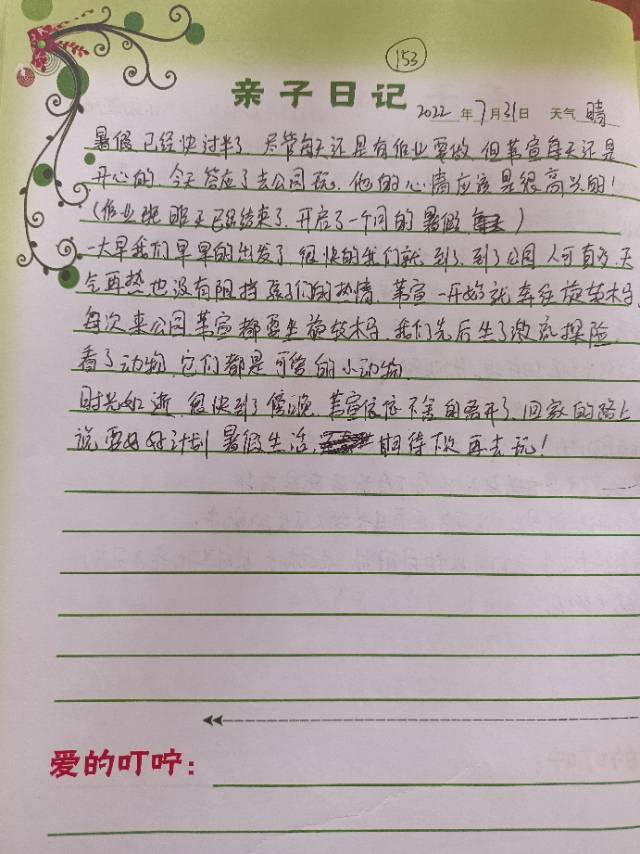 153
亲子日记 2022年7月31日 天气 晴
暑假已经快过半了 尽管每天还是有作业要做 但苇宣每天还是
开心的 今天答应了去公园玩. 他的心情应该是很高兴的!
(作业班 昨天已经结束了. 开启了一个月的暑假)
一大早我们早早的出发了 很快的我们就到了. 到了公园 人可真多, 天
气再热也没有阻挡孩子们的热情. 苇宣一开始就奔往旋转木马,
每次来公园苇宣都要坐旋转木马. 我们先后坐了激流探险
看了动物. 它们都是可爱的小动物.
时光如逝. 很快到了傍晚. 苇宣依依不舍的离开了 回家的路上
说要好好计划暑假生活, 期待下次再去玩!
爱的叮咛: